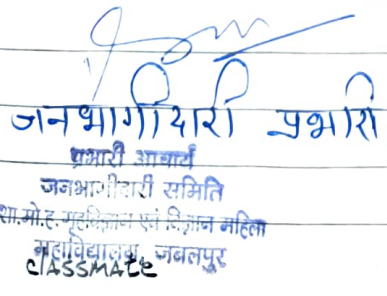 जनभागीदारी प्रभारी
प्रभारी आचार्य
जनभागीदारी समिति
शा.मो.ह. गृहविज्ञान एवं विज्ञान महिला
महाविद्यालय, जबलपुर
classmate